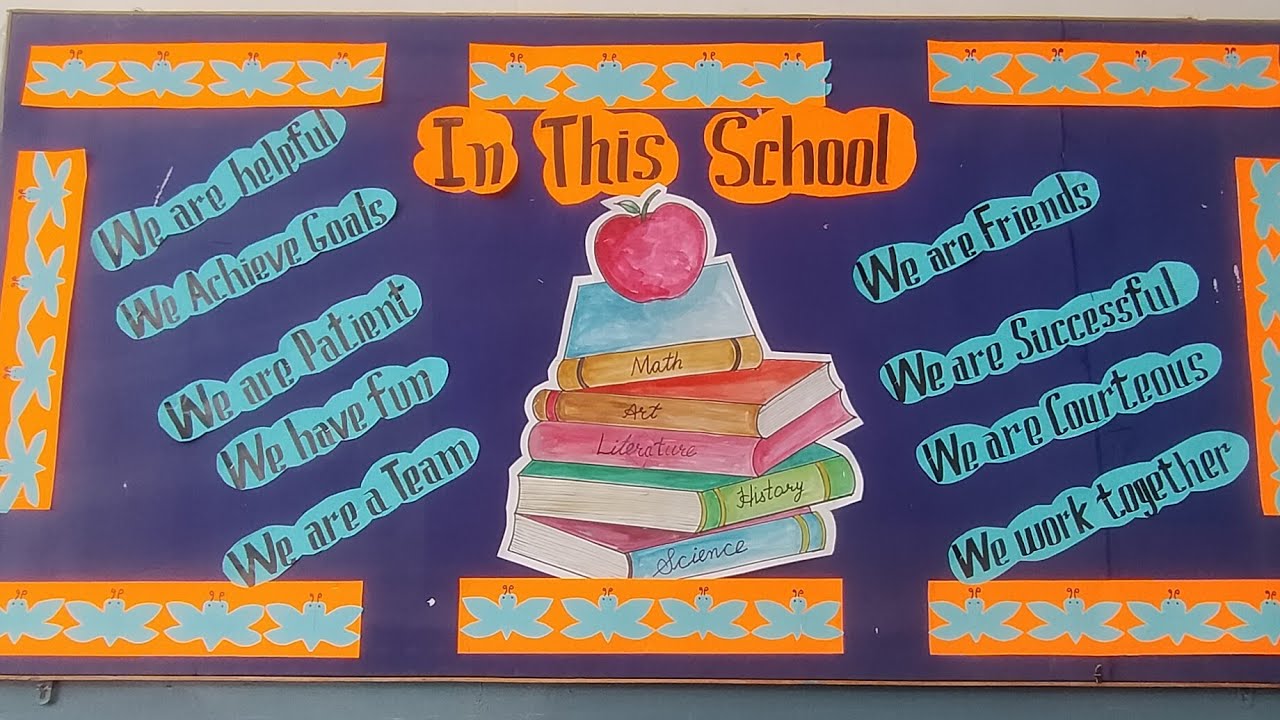 In This School
We are helpful
We Achieve Goals
We are Patient
We have fun
We are a Team
Math
Art
Literature
History
Science
We are Friends
We are Successful
We are Courteous
We work together